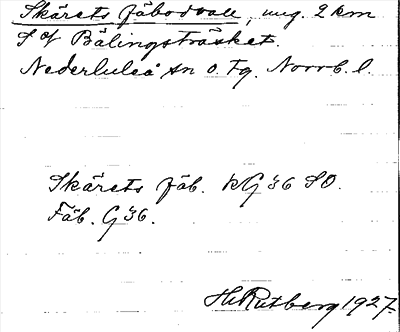 Skärets fäbodvall, ung. 2 km
S of Bälingsträsket.
Nederluleå sn o. tg. Norrb. l.
Skärets fäb. kG36 SO.
Fäb. G36.
H. Rutberg 1927.